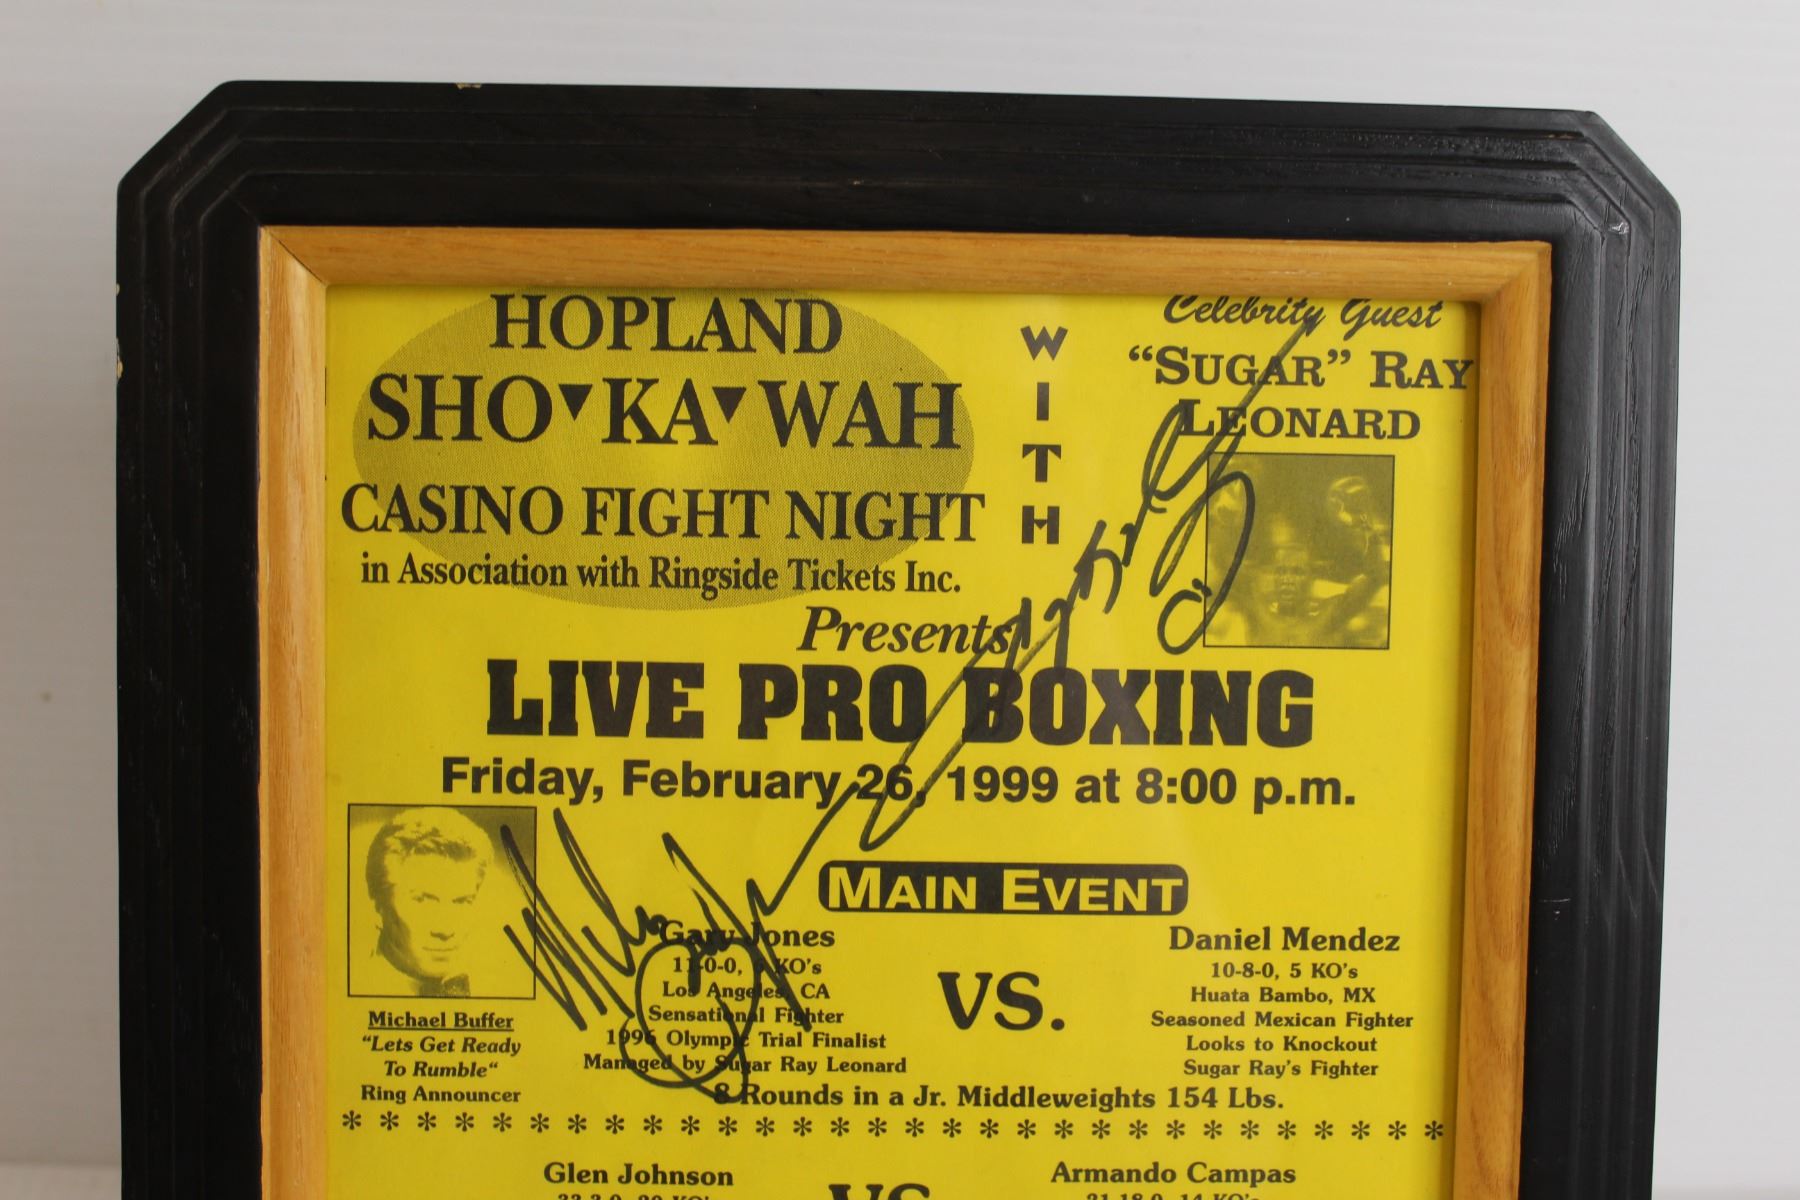 HOPLAND
SHO▼KA▼WAH
CASINO FIGHT NIGHT
in Association with Ringside Tickets Inc.
WITH
Celebrity Guest
“SUGAR” RAY
LEONARD
Presents
LIVE PRO BOXING
Friday, February 26, 1999 at 8:00 p.m.
MAIN EVENT
Michael Buffer
“Lets Get Ready
To Rumble“
Ring Announcer
Gary Jones
11-0-0, KO's
Los Angeles, CA
Sensational Fighter
1996 Olympic Trial Finalist
Managed by Sugar Ray Leonard
VS.
Daniel Mendez
10-8-0, 5 KO's
Huata Bambo, MX
Seasoned Mexican Fighter
Looks to Knockout
Sugar Ray's Fighter
8 Rounds in a Jr. Middleweights 154 Lbs.
* * * * * * * * * * * * * * * * * * * * * * * * * * * * * *
Glen Johnson
VS
Armando Campas